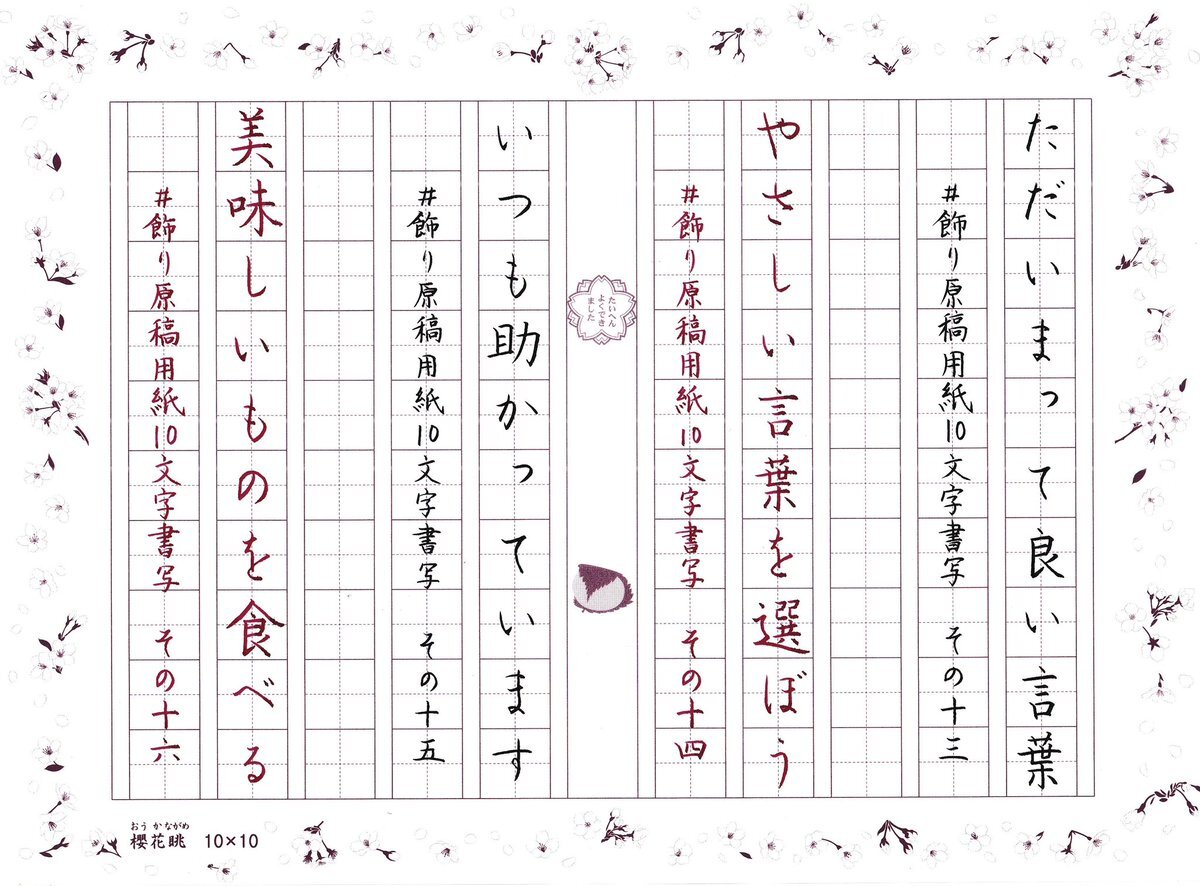 ただいまって良い言葉
#飾り原稿用紙10文字書写 その十三
やさしい言葉を選ぼう
#飾り原稿用紙10文字書写 その十四
たいへん
よくでき
ました
いつも助かっています
#飾り原稿用紙10文字書写 その十五
美味しいものを食べる
#飾り原稿用紙10文字書写 その十六
おうかながめ
櫻花眺 10×10